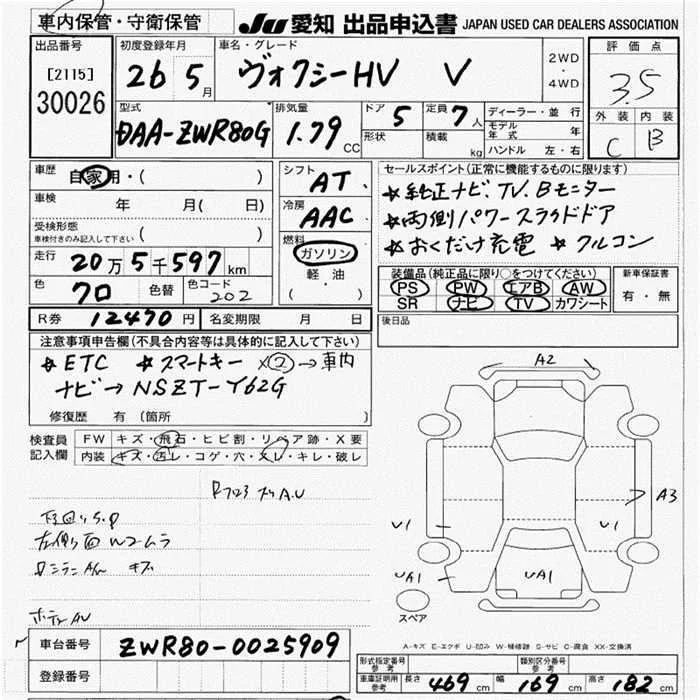 車内保管・守衛保管
JU 愛知 出品申込書 JAPAN USED CAR DEALERS ASSOCIATION
出品番号 初度登録年月 車名・グレード 2WD・4WD 評価点
[2115] 30026 26 5月 ヴォクシーHV V 3.5
型式 排気量 ドア 5 定員 7人 ディーラー・並行 外装 内装
DAA-ZWR80G 1.79 CC 形状 積載 kg モデル年式 年 C B
ハンドル 左・右
車歴 自家用・( ) シフト AT セールスポイント(正常に機能するものに限ります)
車検 年 月( 日) 冷房 AAC ★純正ナビ.TV.Bモニター
受検形態 車検付きのみ記入して下さい ( ) ★両側パワースライドドア
走行 20万5千597km 燃料 ガソリン ★おくだけ充電 ★クルコン
軽・油 ( )
色 クロ 色替 色コード 202
装備品(純正品に限り○をつけてください) 新車保証書
PS PW エアB AW 有・無
SR ナビ TV カワシート
R券 12470円 名変期限 月 日 後日品
注意事項申告欄(不具合内容等は具体的に記入して下さい)
★ETC ★スマートキー×②→車内
ナビ→NSZT-Y62G
修復歴 有(箇所 )
検査員記入欄 FW キズ・飛石・ヒビ割・リペア跡・X要
内装 キズ・汚レ・コゲ・穴・スレ・キレ・破レ
A2
A3
U1 U1
UA1 UA1
左側面 W2ムラ
キズ
スペア
車台番号 ZWR80-0025909
登録番号
A-キズ E-エクボ U-凹み W-補修跡 S-サビ C-腐食 XX-交換済
形式指定番号参考 類別区分番号参考
車庫証明用参考 長さ 469cm 幅 169cm 高さ 182cm